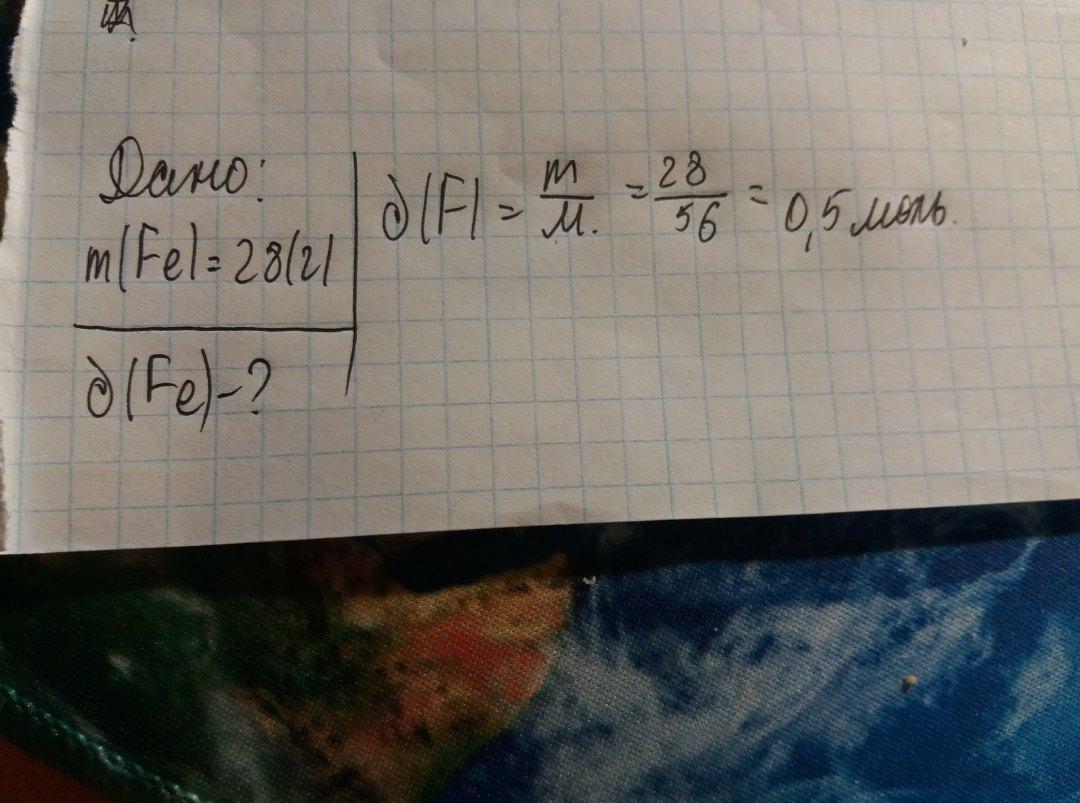 Дано:
m(Fe)=28(г)
∂(Fe)-?
∂(F)= m/M. = 28/56 = 0,5 моль.